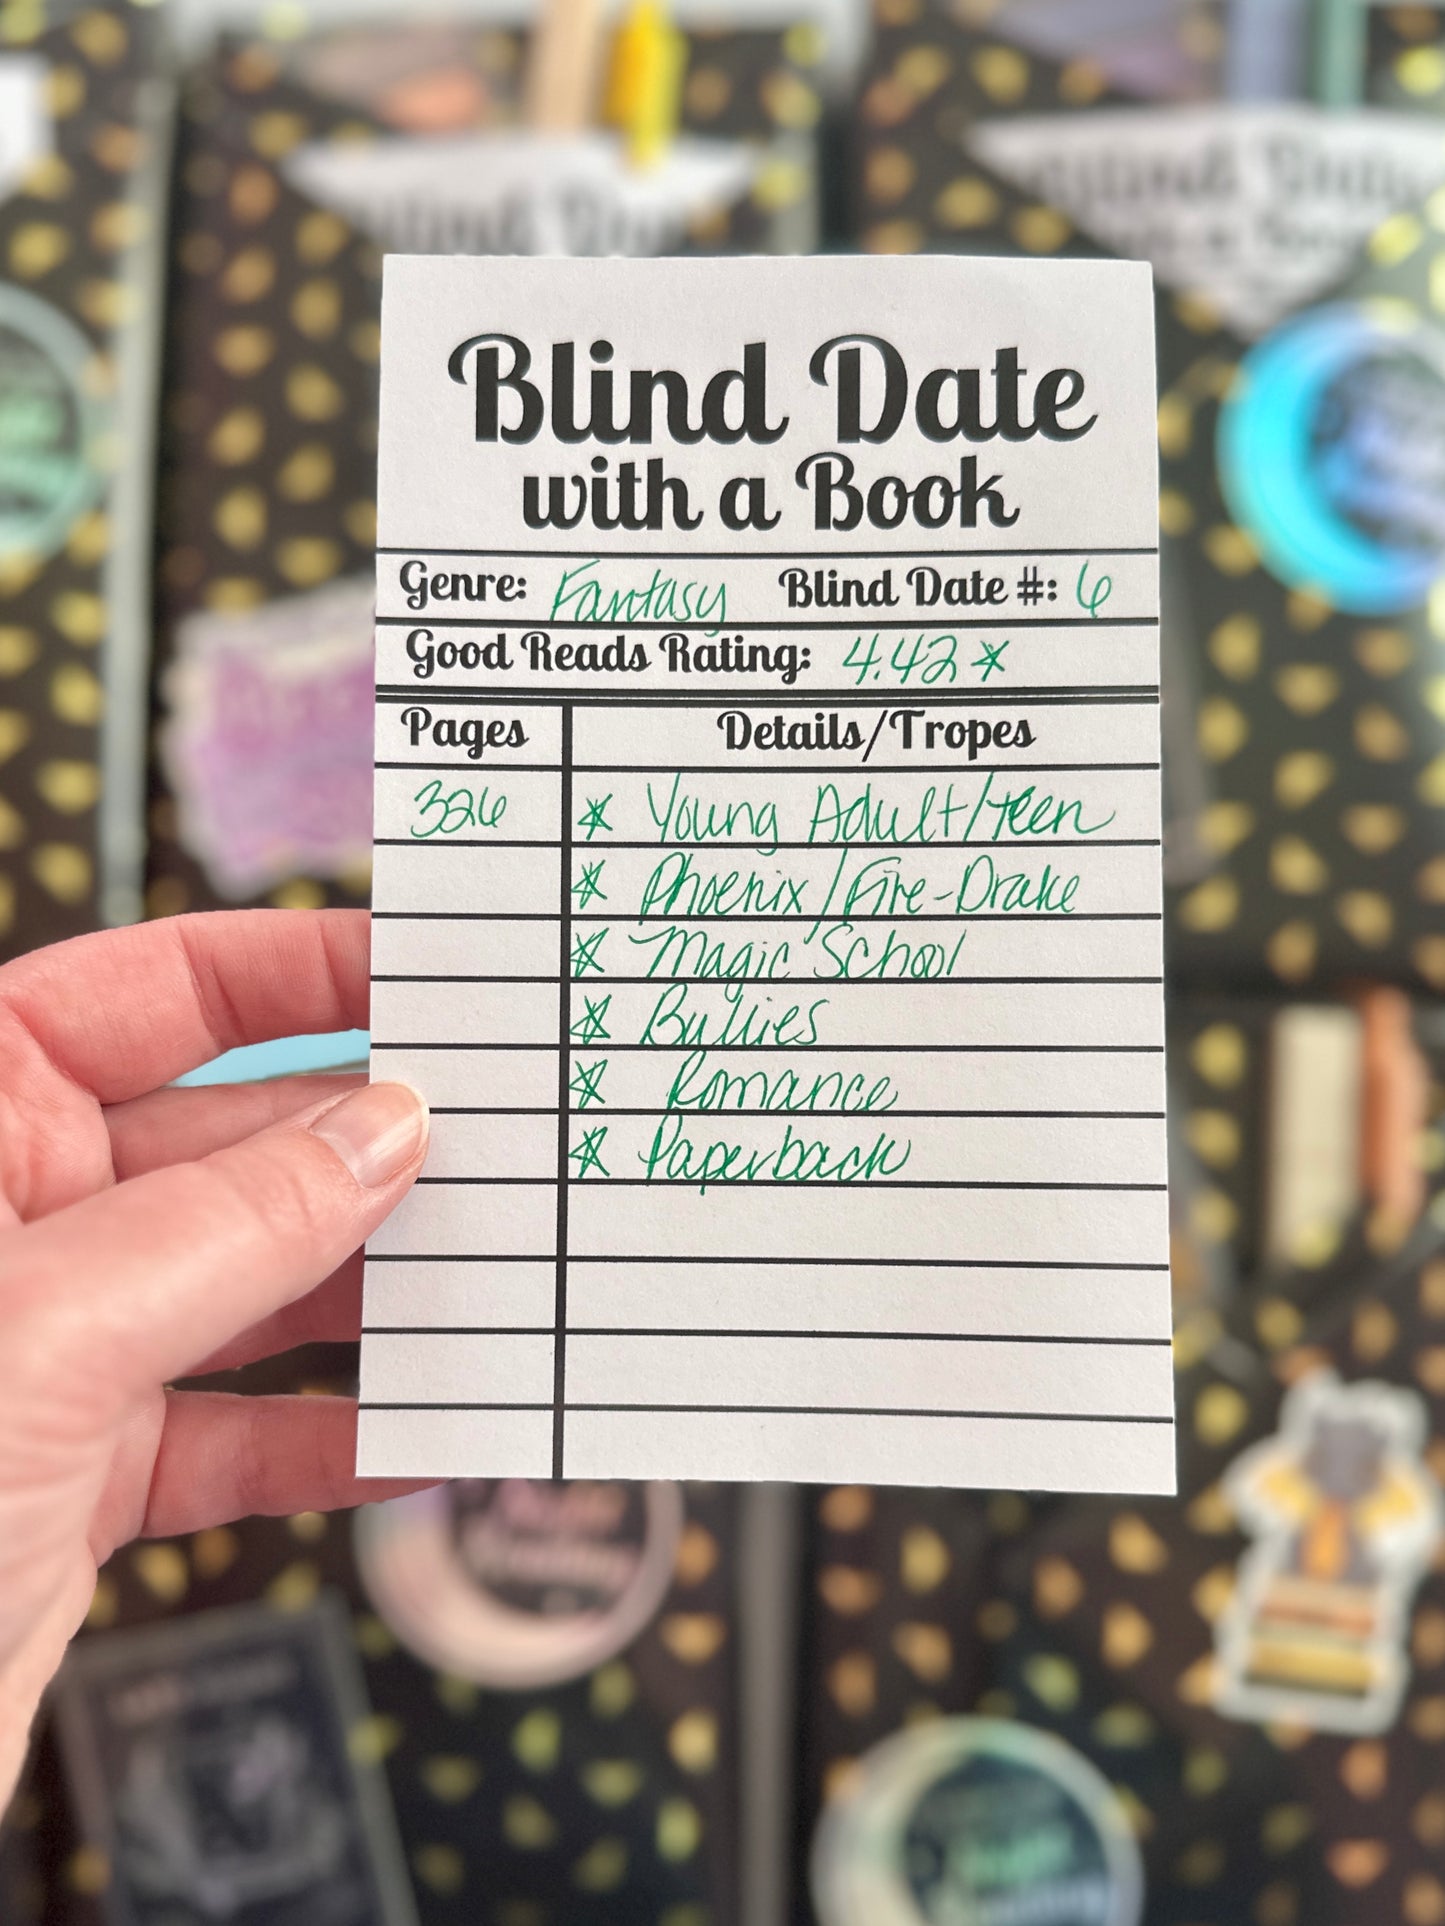 Blind Date
with a Book
Genre: Fantasy Blind Date #: 6
Good Reads Rating: 4.42 ☆
Pages Details/Tropes
326 ☆ Young Adult/teen
☆ Phoenix/Fire-Drake
☆ Magic School
☆ Bullies
☆ Romance
☆ Paperback
Blind Date